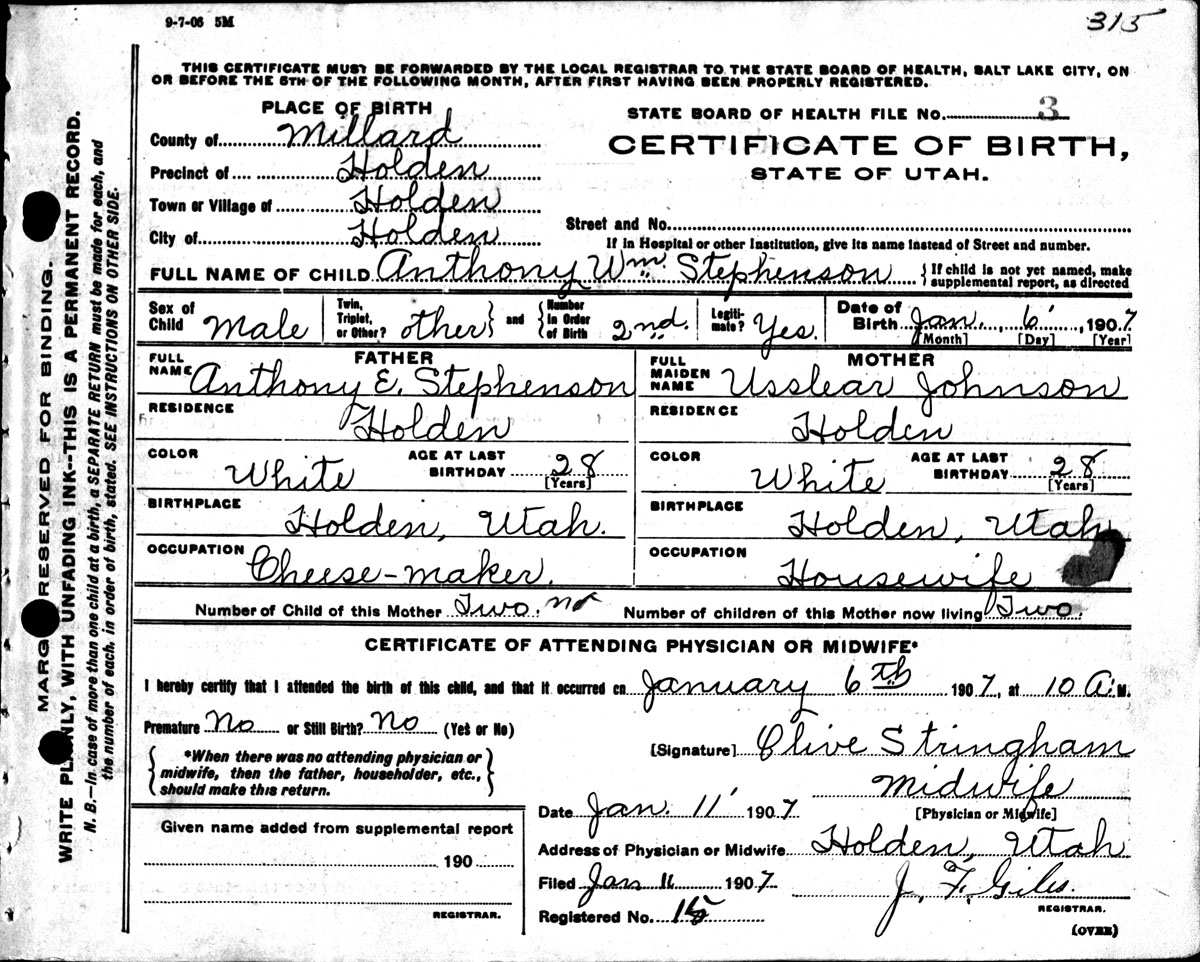 9-7-06 5M
315
THIS CERTIFICATE MUST BE FORWARDED BY THE LOCAL REGISTRAR TO THE STATE BOARD OF HEALTH, SALT LAKE CITY, ON
OR BEFORE THE 5TH OF THE FOLLOWING MONTH, AFTER FIRST HAVING BEEN PROPERLY REGISTERED.
PLACE OF BIRTH
County of Millard
Precinct of Holden
Town or Village of Holden
City of Holden
STATE BOARD OF HEALTH FILE No. 3
CERTIFICATE OF BIRTH,
STATE OF UTAH.
Street and No.
If in Hospital or other Institution, give its name instead of Street and number.
FULL NAME OF CHILD Anthony Wm. Stephenson {If child is not yet named, make supplemental report, as directed
Sex of Child Male Twin, Triplet, or Other? other } and { Number in Order of Birth 2nd. Legiti-mate? Yes. Date of Birth Jan. 6, 1907
[Month] [Day] [Year]
FATHER
FULL NAME Anthony E. Stephenson
RESIDENCE Holden
COLOR White AGE AT LAST BIRTHDAY 28 [Years]
BIRTHPLACE Holden, Utah.
OCCUPATION Cheese-maker.
MOTHER
FULL MAIDEN NAME Usslear Johnson
RESIDENCE Holden
COLOR White AGE AT LAST BIRTHDAY 28 [Years]
BIRTHPLACE Holden, Utah
OCCUPATION Housewife
Number of Child of this Mother Two. Number of children of this Mother now living Two.
CERTIFICATE OF ATTENDING PHYSICIAN OR MIDWIFE*
I hereby certify that I attended the birth of this child, and that it occurred on January 6th 1907, at 10 A. M.
Premature No or Still Birth? No (Yes or No)
{ *When there was no attending physician or
midwife, then the father, householder, etc.,
should make this return. }
[Signature] Clive Stringham
Midwife
[Physician or Midwife]
Date Jan. 11 1907
Address of Physician or Midwife Holden, Utah
Filed Jan 11 1907 J. F. Giles.
REGISTRAR.
Registered No. 15
(OVER)
Given name added from supplemental report
190
REGISTRAR.
MARGIN RESERVED FOR BINDING.
WRITE PLAINLY, WITH UNFADING INK--THIS IS A PERMANENT RECORD.
N. B.—In case of more than one child at a birth, a SEPARATE RETURN must be made for each, and
the number of each, in order of birth, stated. SEE INSTRUCTIONS ON OTHER SIDE.